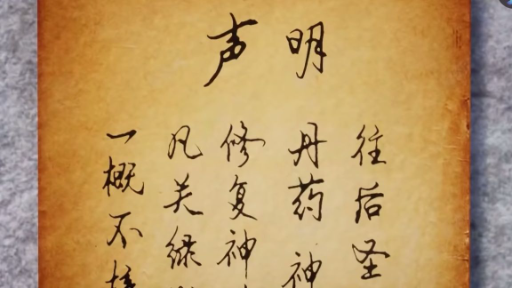 声明
往后圣
丹药 神
修复神
凡关绿
一概不